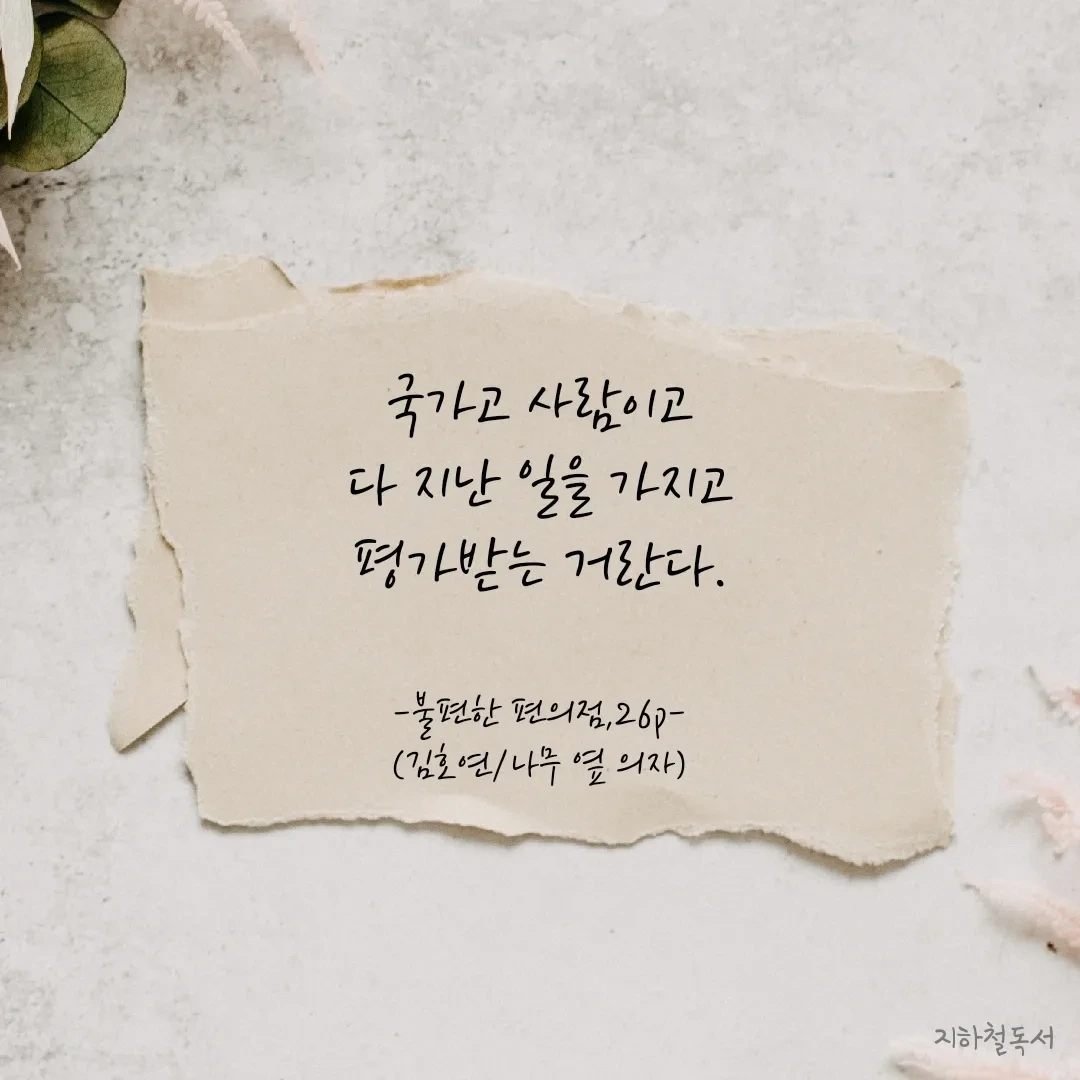 국가고 사람이고
다 지난 일을 가지고
평가받는 거란다.
-불편한 편의점,26p-
(김호연/나무 옆 의자)
지하철독서